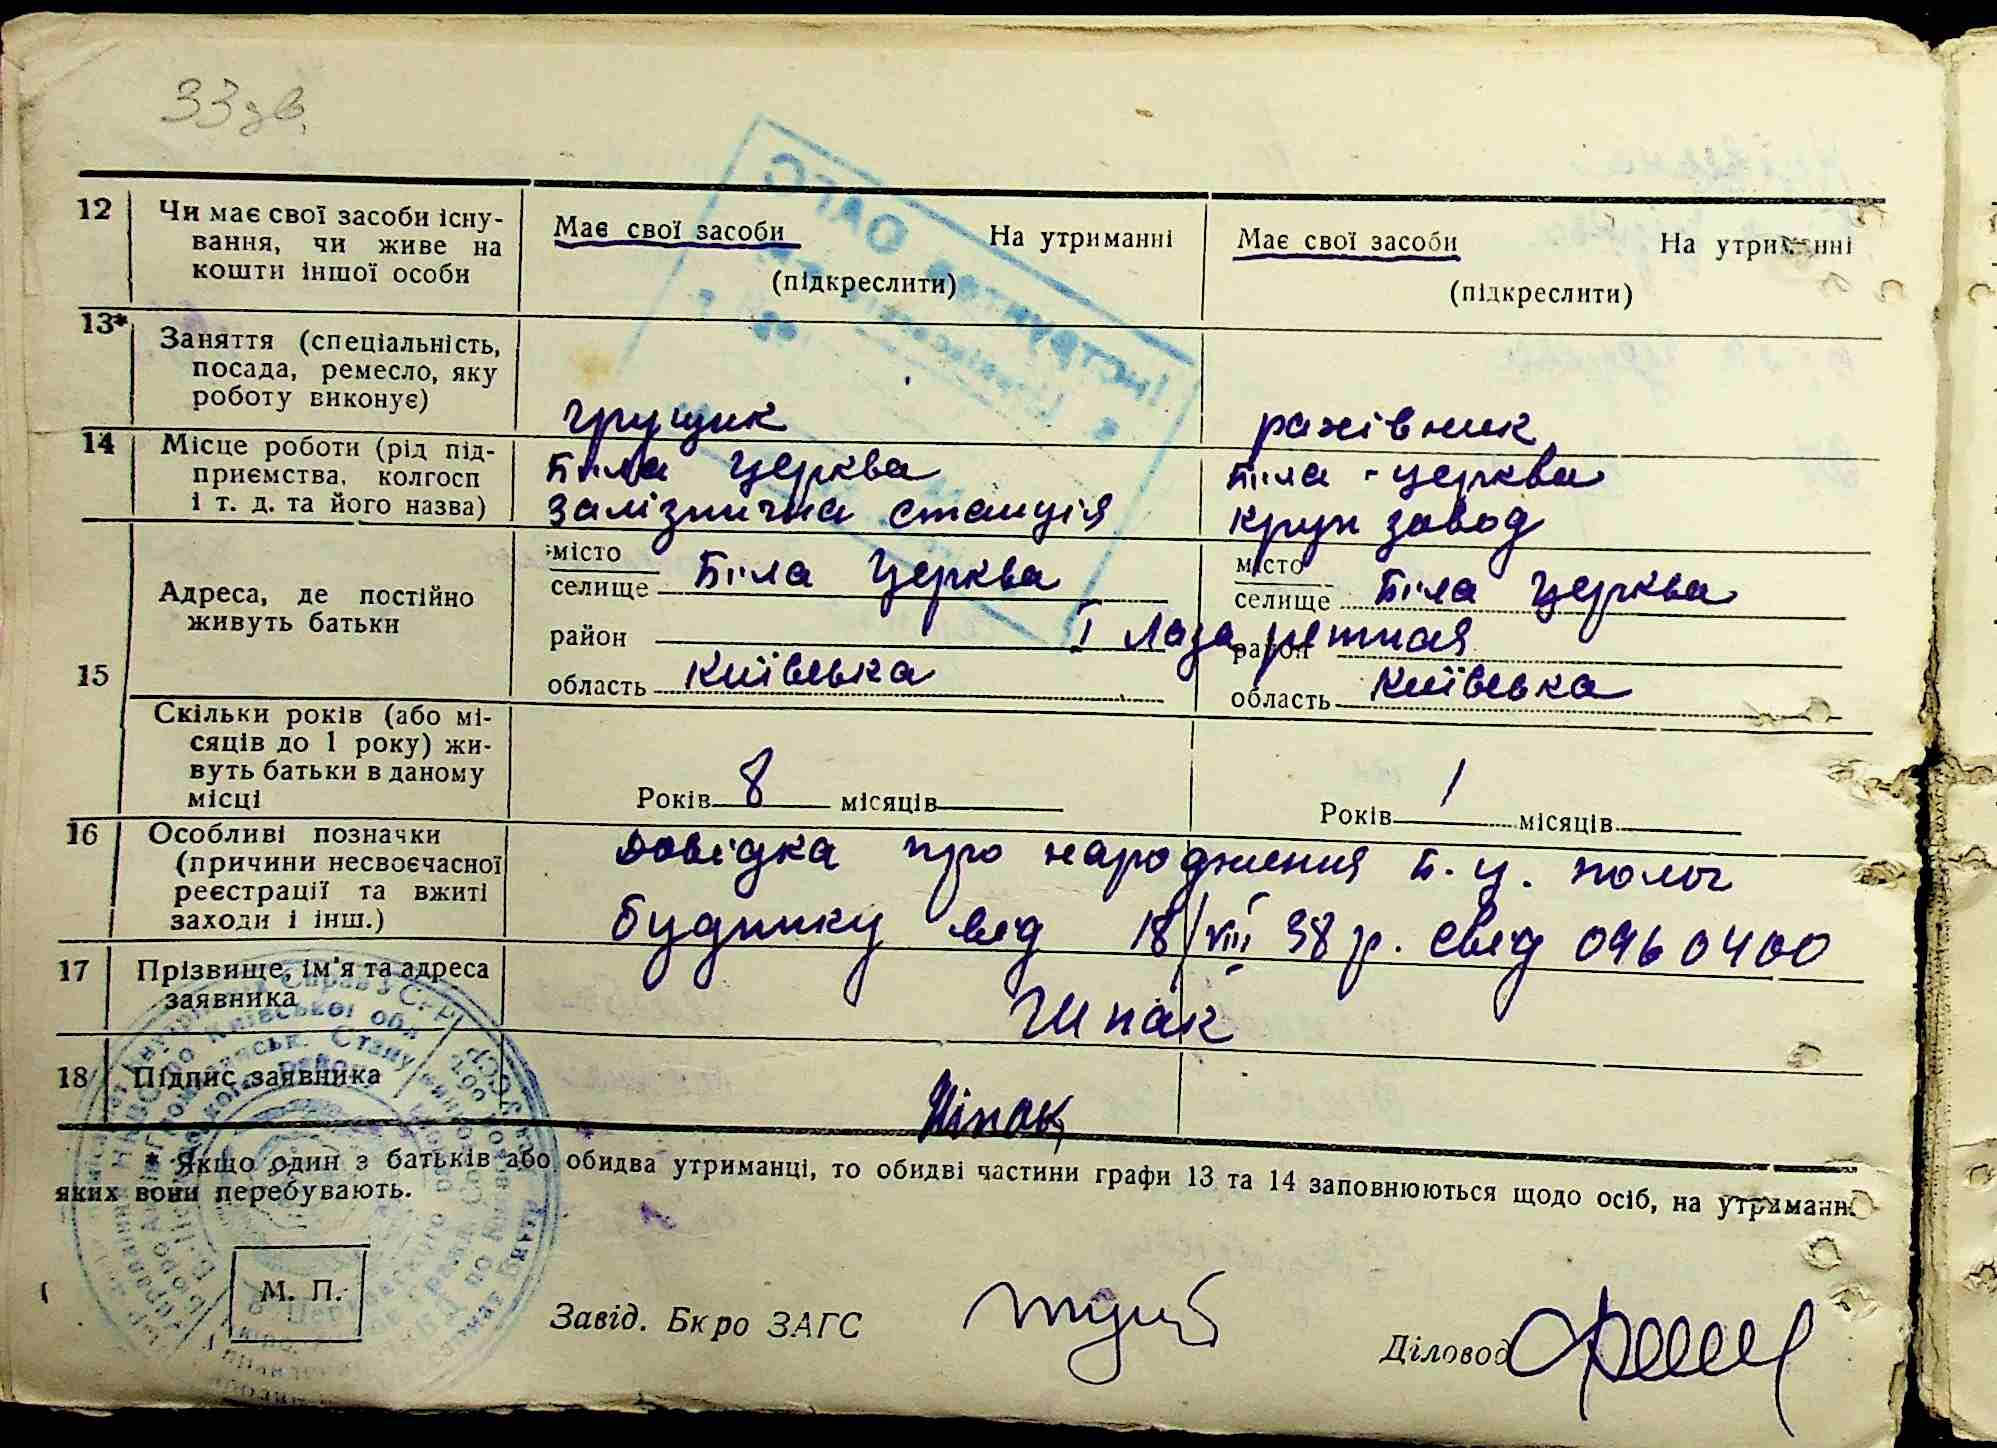 33 зв.
12 Чи має свої засоби існу-
вання, чи живе на
кошти іншої особи
Має свої засоби На утриманні
(підкреслити)
Має свої засоби На утриманні
(підкреслити)
13* Заняття (спеціальність,
посада, ремесло, яку
роботу виконує)
грущик
14 Місце роботи (рід під-
приємства, колгосп
і т. д. та його назва)
Біла Церква
залізнична станція
Біла-церква
круп завод
15 Адреса, де постійно
живуть батьки
місто
селище Біла Церква
район
область Київська
місто
селище Біла Церква
І Лазаретная
район
область Київська
Скільки років (або мі-
сяців до 1 року) жи-
вуть батьки в даному
місці
Років 8 місяців
Років 1 місяців
16 Особливі позначки
(причини несвоєчасної
реєстрації та вжиті
заходи і інш.)
довідка про народження Б. Ц. полог
будинку від 18/VIII 38 р. свід 0960400
17 Прізвище, ім'я та адреса
заявника
Шпак
18 Підпис заявника
Шпак
* Якщо один з батьків або обидва утриманці, то обидві частини графи 13 та 14 заповнюються щодо осіб, на утриманні
яких вони перебувають.
М. П.
Завід. Бюро ЗАГС
Діловод